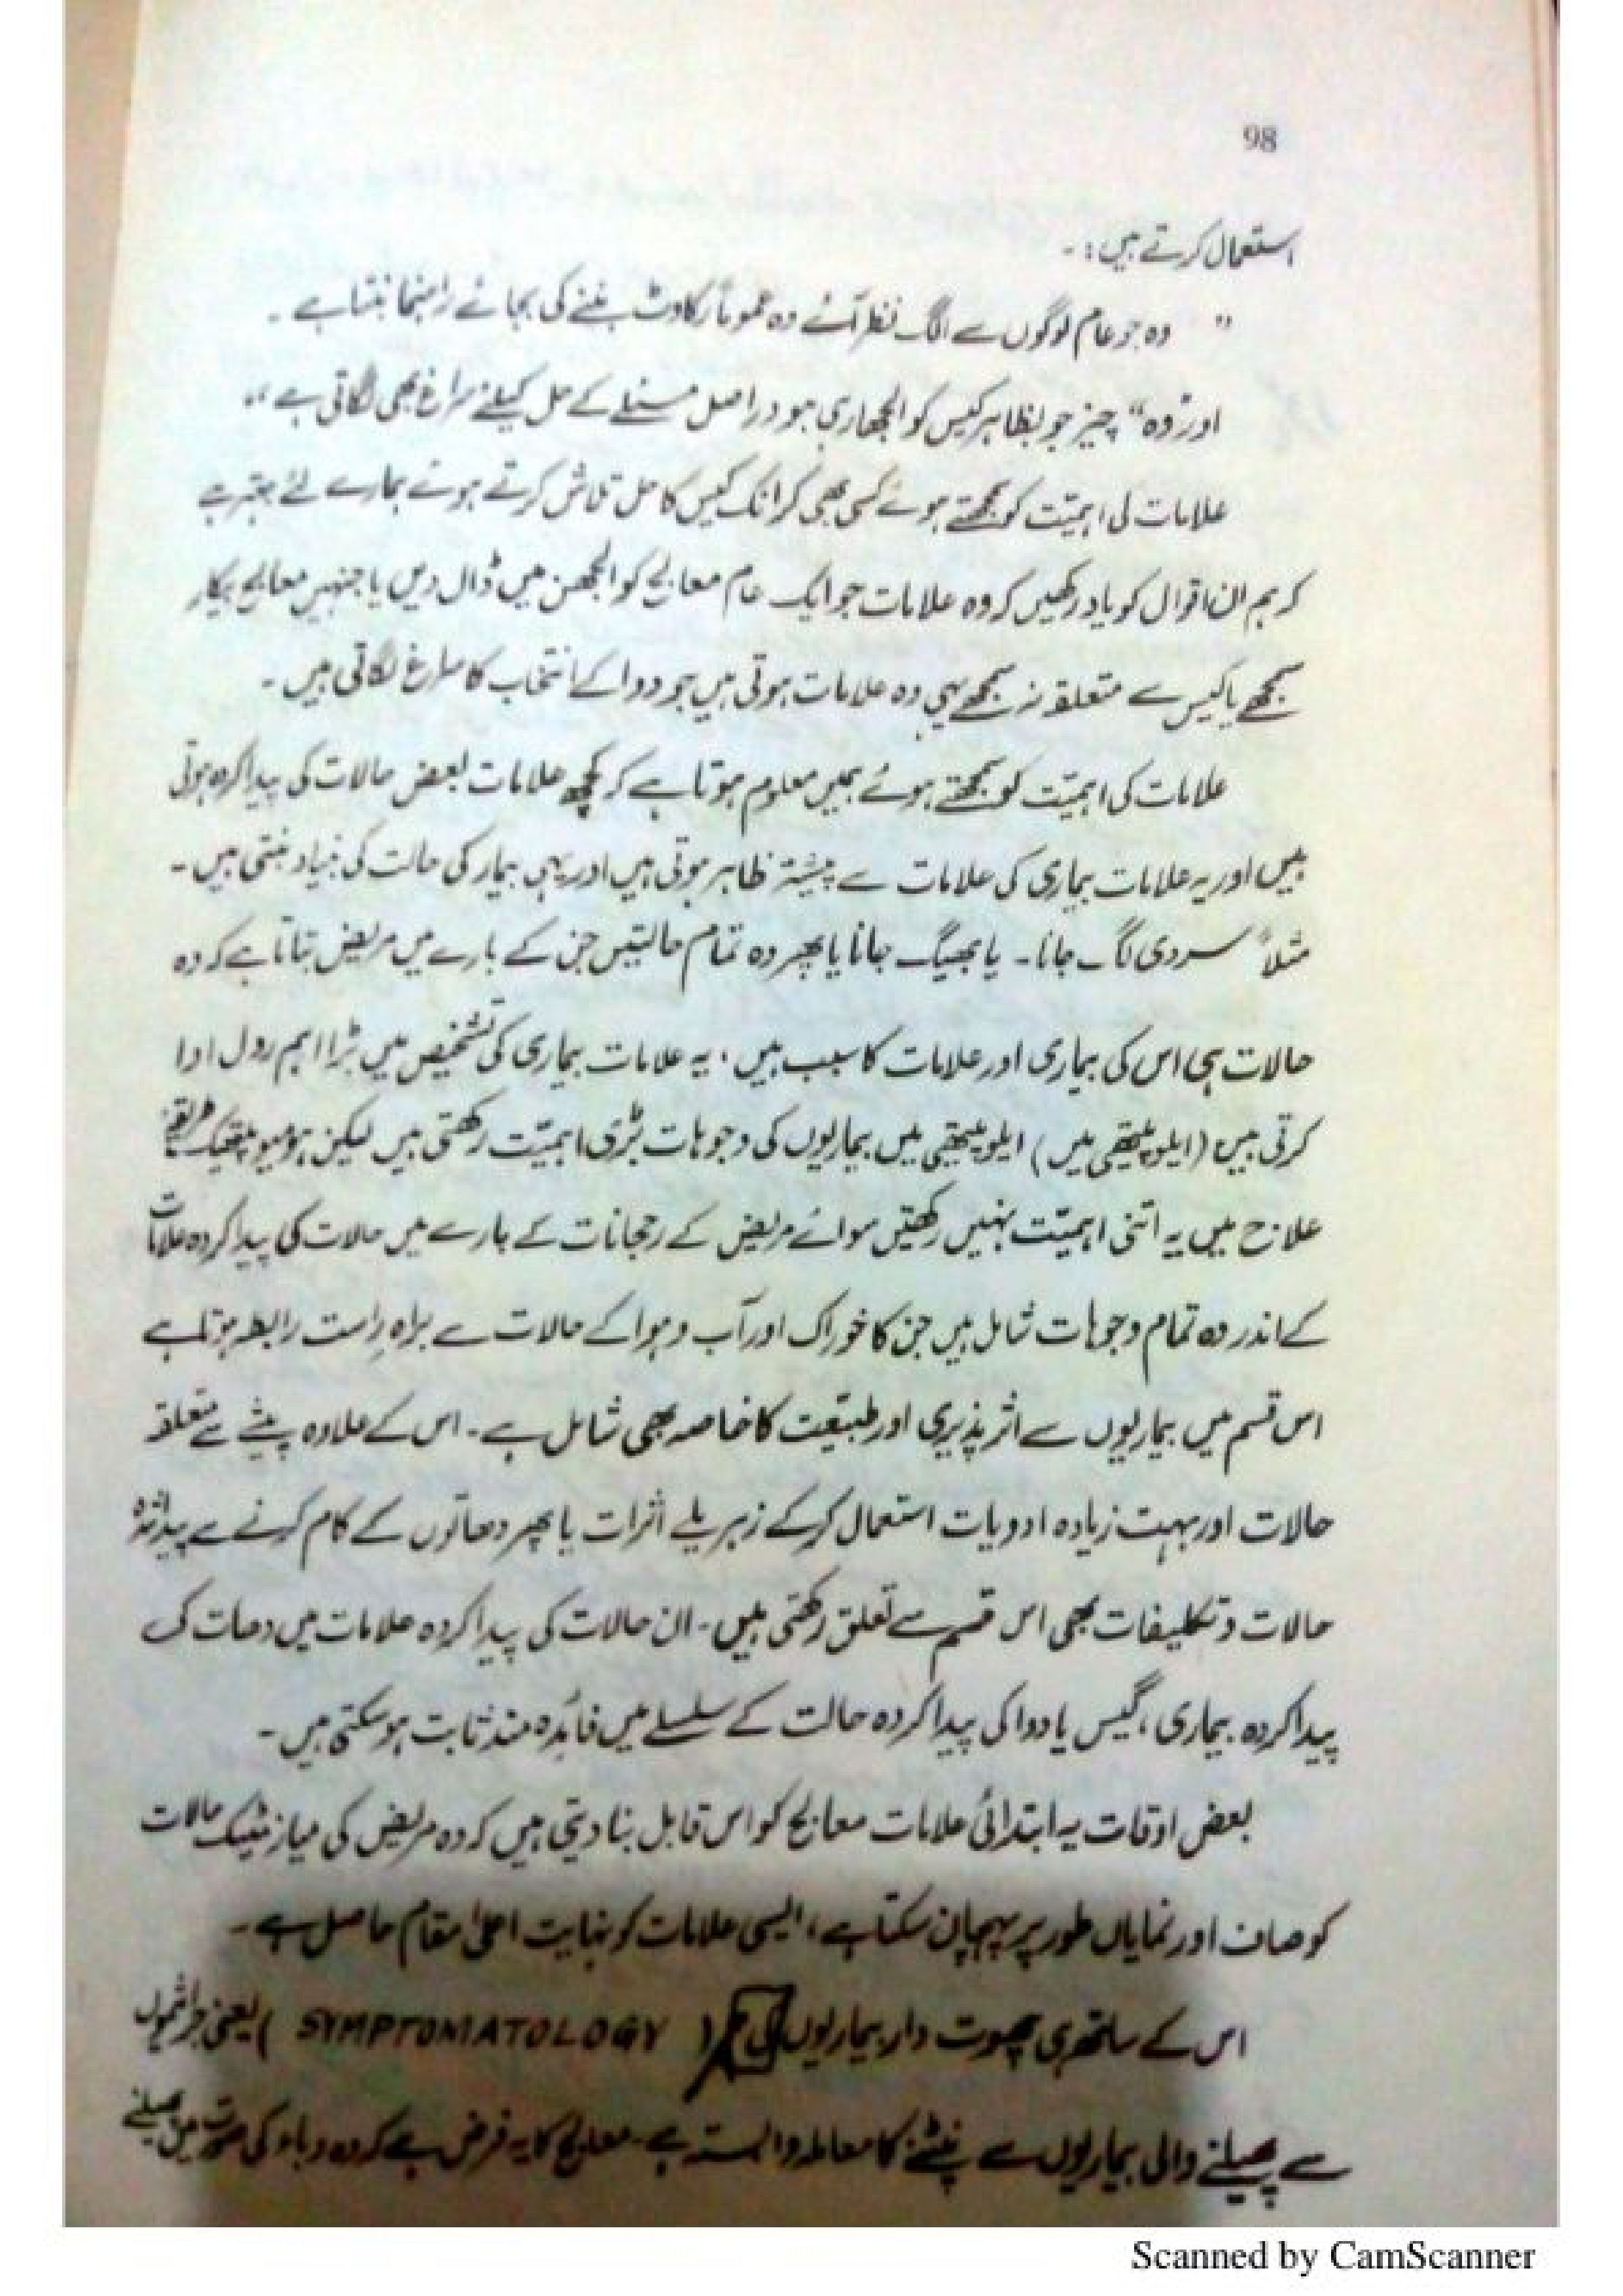 98
استعمال کرتے ہیں:۔
" وہ جو عام لوگوں سے الگ نظر آئے وہ عموماً رکاوٹ بننے کی بجائے راہنما بنتا ہے۔
اور "وہ" چیز جو بظاہر کیس کو الجھا رہی ہو دراصل مسئلے کے حل کیلئے سراغ بھی لگاتی ہے"
علامات کی اہمیّت کو سمجھتے ہوئے کسی بھی کرانک کیس کا حل تلاش کرتے ہوئے ہمارے لئے بہتر ہے
کہ ہم ان اقوال کو یاد رکھیں کہ وہ علامات جو ایک عام معالج کو الجھن میں ڈال دیں یا جنہیں معالج بیکار
سمجھے یا کیس سے متعلقہ نہ سمجھے یہی وہ علامات ہوتی ہیں جو دوا کے انتخاب کا سراغ لگاتی ہیں۔
علامات کی اہمیّت کو سمجھتے ہوئے ہمیں معلوم ہوتا ہے کہ کچھ علامات بعض حالات کی پیدا کردہ ہوتی
ہیں اور یہ علامات بیماری کی علامات سے پیشتر ظاہر ہوتی ہیں اور یہی بیمار کی حالت کی بنیاد بنتی ہیں۔
مثلاً سردی لگ جانا۔ یا بھیگ جانا یا پھر وہ تمام حالتیں جن کے بارے میں مریض بتاتا ہے کہ وہ
حالات ہی اس کی بیماری اور علامات کا سبب ہیں، یہ علامات بیماری کی تشخیص میں بڑا اہم رول ادا
کرتی ہیں (ایلوپیتھی میں) ایلوپیتھی میں بیماریوں کی وجوہات بڑی اہمیّت رکھتی ہیں لیکن ہومیوپیتھک طریقہ
علاج میں یہ اتنی اہمیّت نہیں رکھتیں سوائے مریض کے رحجانات کے بارے میں حالات کی پیدا کردہ علامات
کے اندر وہ تمام وجوہات شامل ہیں جن کا خوراک اور آب و ہوا کے حالات سے براہِ راست رابطہ ہوتا ہے
اس قسم میں بیماریوں سے اثر پذیری اور طبیعت کا خاصہ بھی شامل ہے۔ اس کے علاوہ پیشے سے متعلقہ
حالات اور بہت زیادہ ادویات استعمال کرکے زہریلے اثرات یا پھر دھاتوں کے کام کرنے سے پیدا شدہ
حالات و تکلیفات بھی اس قسم سے تعلق رکھتی ہیں۔ ان حالات کی پیدا کردہ علامات میں دھات کی
پیدا کردہ بیماری، گیس یا دوا کی پیدا کردہ حالت کے سلسلے میں فائدہ مند ثابت ہو سکتی ہیں۔
بعض اوقات یہ ابتدائی علامات معالج کو اس قابل بنا دیتی ہیں کہ وہ مریض کی میازمٹیک حالات
کو صاف اور نمایاں طور پر پہچان سکتا ہے، ایسی علامات کو نہایت اعلیٰ مقام حاصل ہے۔
اس کے ساتھ ہی چھوت دار بیماریوں کی (SYMPTOMATOLOGY) یعنی جراثیموں
سے پھیلنے والی بیماریوں سے نپٹنے کا معاملہ وابستہ ہے۔ معالج کا یہ فرض ہے کہ وہ وباء کی صورت میں پھیلنے
Scanned by CamScanner